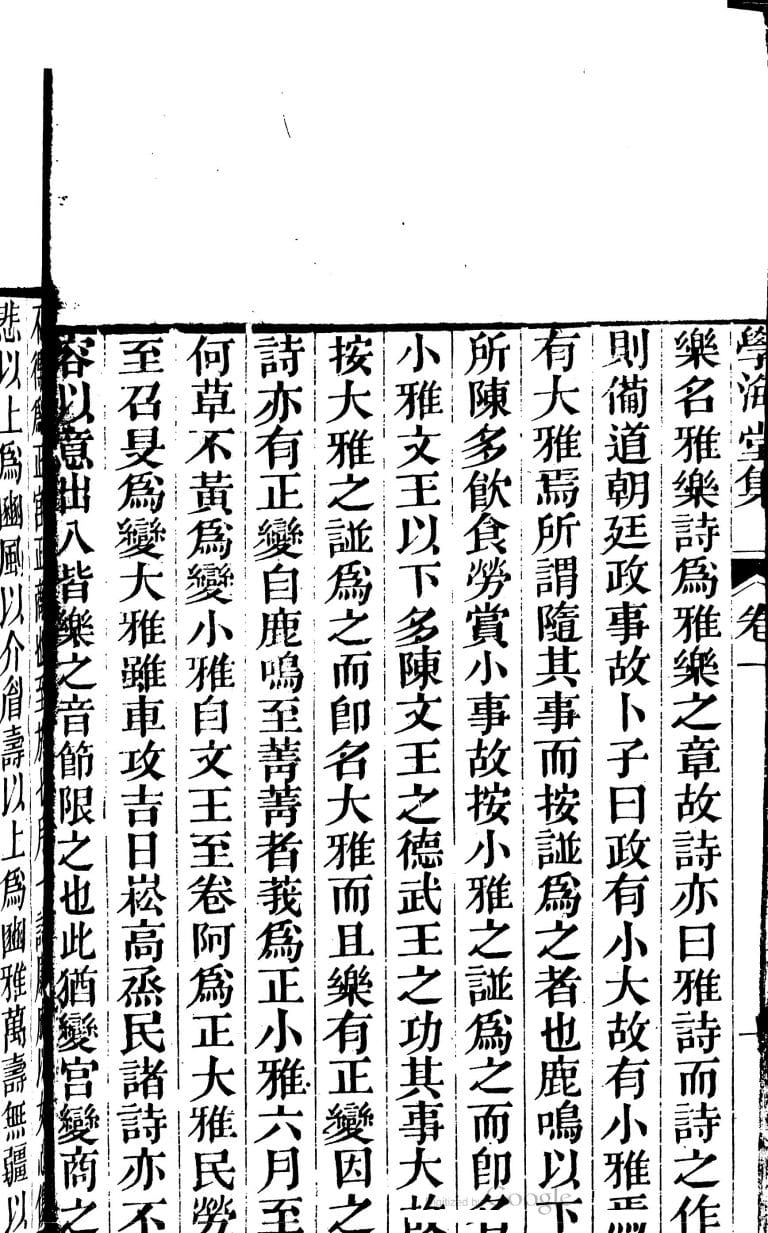 學海堂集 卷一
樂名雅樂詩爲雅樂之章故詩亦曰雅詩而詩之作
則備道朝廷政事故卜子曰政有小大故有小雅焉
有大雅焉所謂隨其事而按諩爲之者也鹿鳴以下
所陳多飮食勞賞小事故按小雅之諩爲之而卽名
小雅文王以下多陳文王之德武王之功其事大故
按大雅之諩爲之而卽名大雅而且樂有正變因之
詩亦有正變自鹿鳴至菁菁者莪爲正小雅六月至
何草不黃爲變小雅自文王至卷阿爲正大雅民勞
至召旻爲變大雅雖車攻吉日崧高烝民諸詩亦不
容以意出入皆樂之音節限之也此猶變宮變商之
以上爲豳風以介眉壽以上爲豳雅萬壽無疆以
Digitized by Google